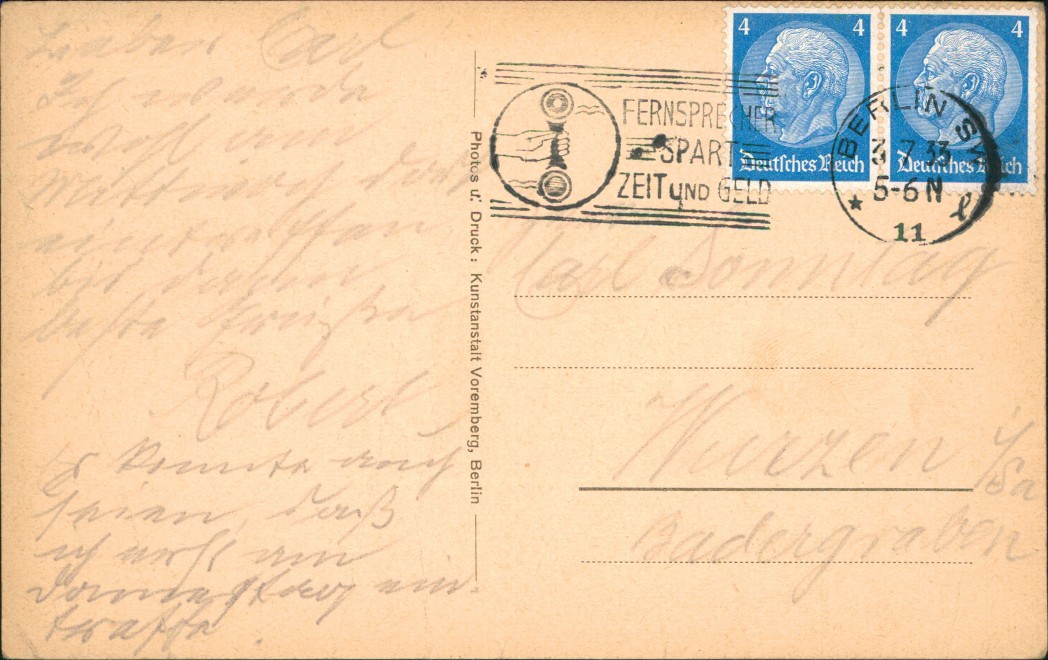 Lieber Carl
Ich werde
wohl am
Mittwoch dort
eintreffen
bis dahin
beste Grüße
Robert
Es könnte auch
seien, daß
ich erst am
Donnerstag ein-
treffe
Photos u. Druck: Kunstanstalt Voremberg, Berlin
FERNSPRECHER
SPART
ZEIT UND GELD
4
4
Deutsches Reich
Deutsches Reich
BERLIN SW
3.7.33
5-6 N
★ 11 l
Carl Sonntag
Wurzen i/Sa
Badergraben